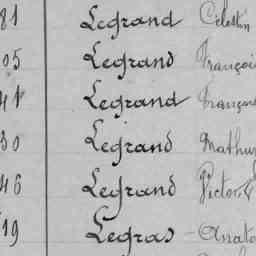 81 Legrand Célestin
05 Legrand Françoi
41 Legrand França
30 Legrand Mathu
46 Legrand Victor
19 Legras Anato